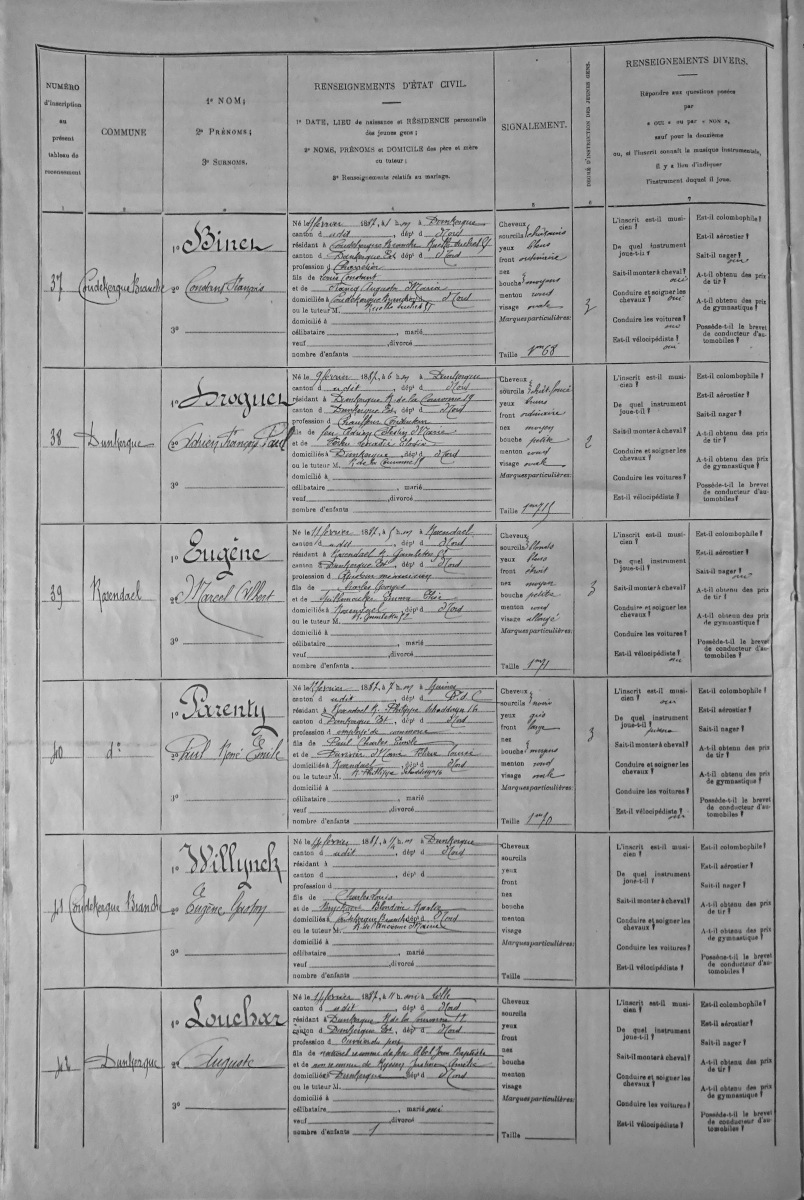 NUMÉRO
d'inscription
au
présent
tableau de
recensement
COMMUNE
1º NOM;
2º PRÉNOMS;
3º SURNOMS.
RENSEIGNEMENTS D'ÉTAT CIVIL.
1º DATE, LIEU de naissance et RÉSIDENCE personnelle
des jeunes gens;
2º NOMS, PRÉNOMS et DOMICILE des père et mère
ou tuteur;
3º Renseignements relatifs au mariage.
SIGNALEMENT.
DEGRÉ D'INSTRUCTION DES JEUNES GENS.
RENSEIGNEMENTS DIVERS.
Répondre aux questions posées
par
« OUI » ou par « NON »,
sauf pour la deuxième
où, si l'inscrit connaît la musique instrumentale,
il y a lieu d'indiquer
l'instrument duquel il joue.
1 2 3 4 5 6 7
37
Coudekerque Branche
1º
2º Constant François
3º
Né le février 1887, à Dunkerque
canton d udit, dépt d Nord
résidant à Coudekerque Branche
canton d Dunkerque Est, dépt d Nord
profession d
fils de Louis Constant
et de Augusta Maria
domiciliés à Coudekerque Branche, dépt d Nord
ou le tuteur M.
domicilié à
célibataire, marié
veuf, divorcé
nombre d'enfants
Cheveux
sourcils châtains
yeux bleus
front ordinaire
nez
bouche moyens
menton rond
visage ovale
Marques particulières:
Taille 1m68
3
L'inscrit est-il musi-
cien?
De quel instrument
joue-t-il?
Sait-il monter à cheval?
oui
Conduire et soigner les
chevaux? oui
Conduire les voitures?
oui
Est-il vélocipédiste?
oui
Est-il colombophile?
Est-il aérostier?
Sait-il nager?
oui
A-t-il obtenu des prix
de tir?
A-t-il obtenu des prix
de gymnastique?
Possède-t-il le brevet
de conducteur d'au-
tomobiles?
38
Dunkerque
1º
2º Adrien François Paul
3º
Né le 9 février 1887, à 6 h m à Dunkerque
canton d udit, dépt d Nord
résidant à Dunkerque R. de la Couronne 19
canton d Dunkerque Est, dépt d Nord
profession d Chauffeur
fils de feu Adrien
et de
domiciliés à Dunkerque, dépt d Nord
ou le tuteur M. R. de la Couronne
domicilié à
célibataire, marié
veuf, divorcé
nombre d'enfants
Cheveux
sourcils chât. foncé
yeux bruns
front ordinaire
nez moyen
bouche petite
menton rond
visage ovale
Marques particulières:
Taille 1m715
2
L'inscrit est-il musi-
cien?
De quel instrument
joue-t-il?
Sait-il monter à cheval?
Conduire et soigner les
chevaux?
Conduire les voitures?
Est-il vélocipédiste?
Est-il colombophile?
Est-il aérostier?
Sait-il nager?
A-t-il obtenu des prix
de tir?
A-t-il obtenu des prix
de gymnastique?
Possède-t-il le brevet
de conducteur d'au-
tomobiles?
39
Rosendael
1º Eugène
2º Marcel Albert
3º
Né le 11 février 1887, à Rosendael
canton d udit, dépt d Nord
résidant à Rosendael R.
canton d Dunkerque Est, dépt d Nord
profession d mécanicien
fils de Charles Georges
et de Emma
domiciliés à Rosendael, dépt d Nord
ou le tuteur M.
domicilié à
célibataire, marié
veuf, divorcé
nombre d'enfants
Cheveux
sourcils blonds
yeux bleus
front étroit
nez moyen
bouche petite
menton rond
visage allongé
Marques particulières:
Taille 1m71
3
L'inscrit est-il musi-
cien?
De quel instrument
joue-t-il?
Sait-il monter à cheval?
Conduire et soigner les
chevaux?
Conduire les voitures?
Est-il vélocipédiste?
oui
Est-il colombophile?
Est-il aérostier?
Sait-il nager?
oui
A-t-il obtenu des prix
de tir?
A-t-il obtenu des prix
de gymnastique?
Possède-t-il le brevet
de conducteur d'au-
tomobiles?
40
dº
1º Parenty
2º Paul René Émile
3º
Né le février 1887, à 7 h m à Guines
canton d udit, dépt d P. d. C
résidant à Rosendael R. Philippe 16
canton d Dunkerque Est, dépt d Nord
profession d employé de commerce
fils de Paul Charles Émile
et de Marie
domiciliés à Rosendael, dépt d Nord
ou le tuteur M. R. Philippe
domicilié à
célibataire, marié
veuf, divorcé
nombre d'enfants
Cheveux
sourcils noirs
yeux gris
front large
nez
bouche moyens
menton rond
visage ovale
Marques particulières:
Taille 1m70
3
L'inscrit est-il musi-
cien? oui
De quel instrument
joue-t-il? piano
Sait-il monter à cheval?
Conduire et soigner les
chevaux?
Conduire les voitures?
Est-il vélocipédiste?
oui
Est-il colombophile?
Est-il aérostier?
Sait-il nager?
A-t-il obtenu des prix
de tir?
A-t-il obtenu des prix
de gymnastique?
Possède-t-il le brevet
de conducteur d'au-
tomobiles?
41
Coudekerque Branche
1º Willynck
2º Eugène Gaston
3º
Né le février 1887, à Dunkerque
canton d udit, dépt d Nord
résidant à
canton d, dépt d
profession d
fils de Charles Louis
et de Blondine
domiciliés à Coudekerque Branche, dépt d Nord
ou le tuteur M. R. de l'ancienne Mairie
domicilié à
célibataire, marié
veuf, divorcé
nombre d'enfants
Cheveux
sourcils
yeux
front
nez
bouche
menton
visage
Marques particulières:
Taille
L'inscrit est-il musi-
cien?
De quel instrument
joue-t-il?
Sait-il monter à cheval?
Conduire et soigner les
chevaux?
Conduire les voitures?
Est-il vélocipédiste?
Est-il colombophile?
Est-il aérostier?
Sait-il nager?
A-t-il obtenu des prix
de tir?
A-t-il obtenu des prix
de gymnastique?
Possède-t-il le brevet
de conducteur d'au-
tomobiles?
42
Dunkerque
1º Louchar
2º Auguste
3º
Né le février 1887, à 11 h à Lille
canton d udit, dépt d Nord
résidant à Dunkerque R. de la Couronne 12
canton d Dunkerque Est, dépt d Nord
profession d
fils de naturel reconnu de feu Abel Jean Baptiste
et de non reconnu de Amélie
domiciliés à Dunkerque, dépt d Nord
ou le tuteur M.
domicilié à
célibataire, marié oui
veuf, divorcé
nombre d'enfants 1
Cheveux
sourcils
yeux
front
nez
bouche
menton
visage
Marques particulières:
Taille
L'inscrit est-il musi-
cien?
De quel instrument
joue-t-il?
Sait-il monter à cheval?
Conduire et soigner les
chevaux?
Conduire les voitures?
Est-il vélocipédiste?
Est-il colombophile?
Est-il aérostier?
Sait-il nager?
A-t-il obtenu des prix
de tir?
A-t-il obtenu des prix
de gymnastique?
Possède-t-il le brevet
de conducteur d'au-
tomobiles?